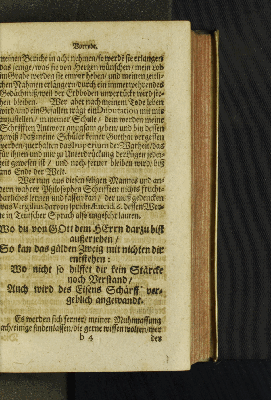 Vorrede.
meinen Bericht in acht nehmen / so werdet sie erlangen
das jenige / was sie von Hertzen wünschen / mein Lob
im Grabe werden sie empor heben / und meinen zeitli-
chen Nahmen erlangen / durch ein immerwehrendes
Gedächtniß / weil der Erdboden unverrückt wird ste-
hen bleiben. Wer aber nach meinem Tode leben
wird / und ein Gefallen trägt ein Disputation mit mir
anzustellen / in meiner Schule / dem werden meine
Schrifften Antwort gnugsam geben / und bin dessen
gewiß / daß meine Schüler keiner Gunst
werden / zu erhalten das Imperium der Warheit / das
für ihnen und mir zu Unterdrückung der Lügen jeder-
zeit gewesen ist / und noch ferner bleiben wird / biß
ans Ende der Welt.
Wer nun aus dieses seligen Mannes und an-
dern wahrer Philosophen Schrifften nichts frucht-
barliches lernen und fassen kan / der mag gedencken
was Vergilius darvon
te in Teutscher Sprach also ungefehr lauten.
Wo du von GOtt dem HErrn darzu bist
außerjehen /
So kan das gülden Zweig mit nichten dir
entstehen:
Wo nicht so hilffet dir kein Stärcke
noch Verstand /
Auch wird des Eisens Schärff ver-
geblich angewandt.
Es werden sich ferner / meiner Muhtmassung
nach / einige finden lassen / die gerne wissen wolten / wer
b 4
der